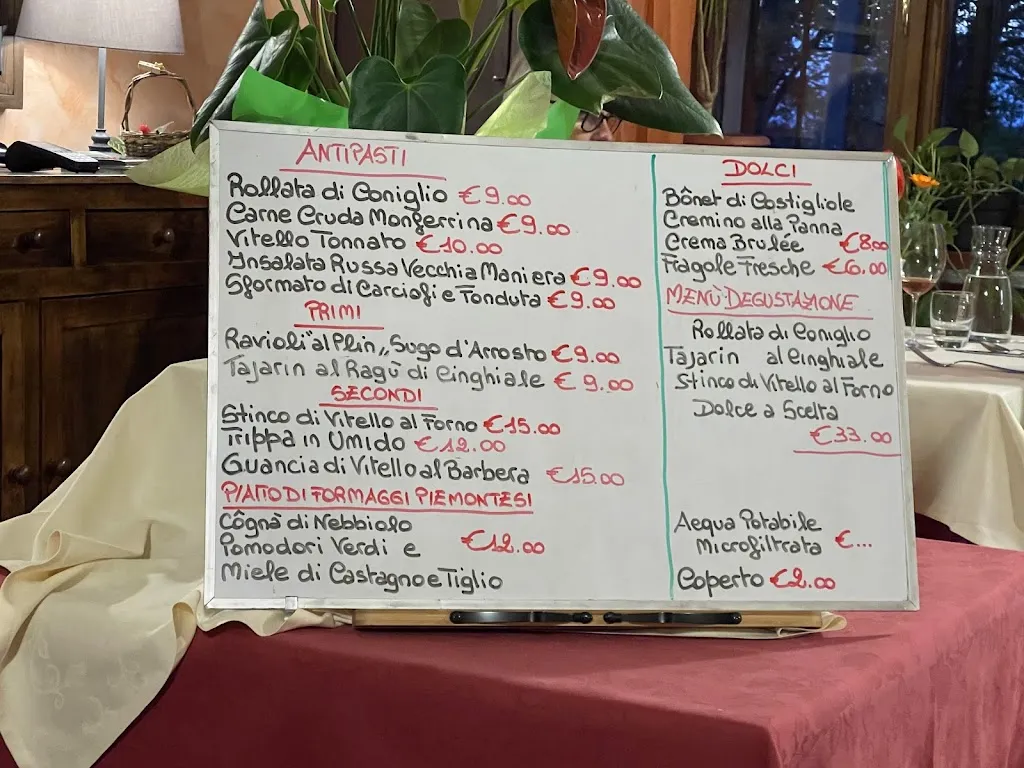 ANTIPASTI
Rollata di Coniglio €9.00
Carne Cruda Monferrina €9.00
Vitello Tonnato €10.00
Insalata Russa Vecchia Maniera €9.00
Sformato di Carciofi e Fonduta €9.00
PRIMI
Ravioli "al Plin" Sugo d'Arrosto €9.00
Tajarin al Ragù di Cinghiale €9.00
SECONDI
Stinco di Vitello al Forno €15.00
Trippa in Umido €12.00
Guancia di Vitello al Barbera €15.00
PIATTO DI FORMAGGI PIEMONTESI
Côgnà di Nebbiolo
Pomodori Verdi e €12.00
Miele di Castagno e Tiglio
DOLCI
Bônet di Costigliole
Cremino alla Panna
Crema Brulée €8.00
Fragole Fresche €6.00
MENÙ DEGUSTAZIONE
Rollata di Coniglio
Tajarin al Cinghiale
Stinco di Vitello al Forno
Dolce a Scelta
€33.00
Acqua Potabile
Microfiltrata €...
Coperto €2.00